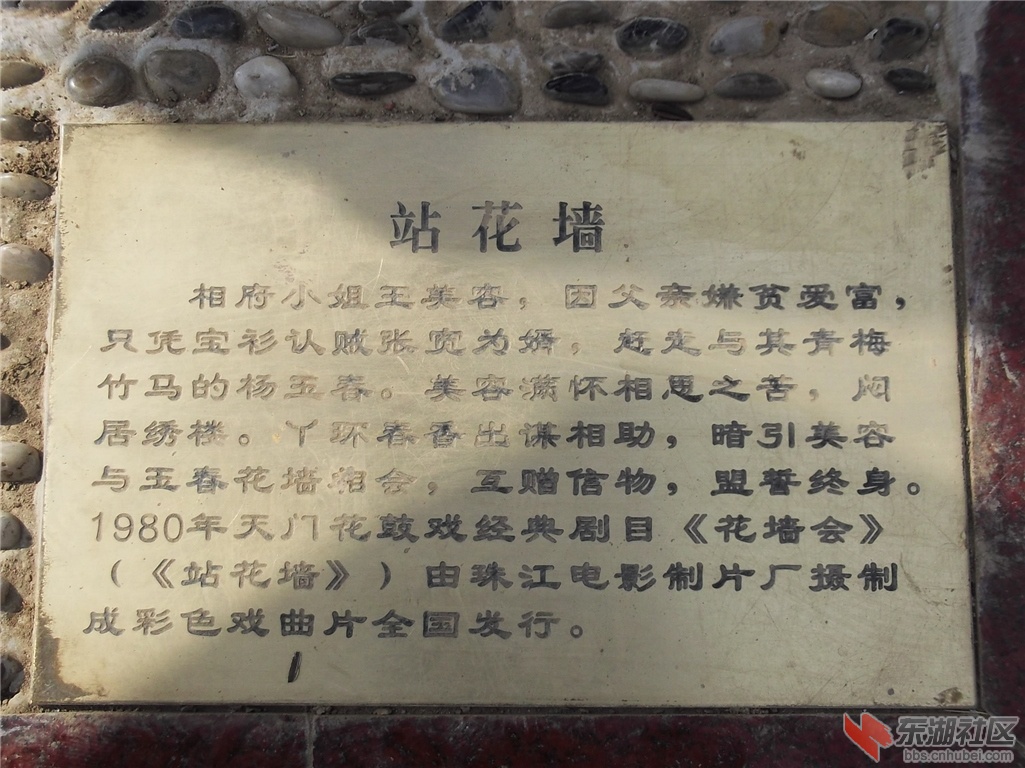 站花墙
相府小姐王美容，因父亲嫌贫爱富，
只凭宝衫认贼张宽为婿，赶走与其青梅
竹马的杨玉春。美容满怀相思之苦，闷
居绣楼。丫环春香出谋相助，暗引美容
与玉春花墙相会，互赠信物，盟誓终身。
1980年天门花鼓戏经典剧目《花墙会》
（《站花墙》）由珠江电影制片厂摄制
成彩色戏曲片全国发行。
东湖社区
bbs.cnhubei.com